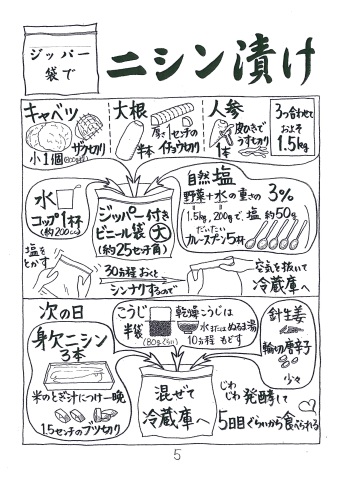 ジッパー
袋で
ニシン漬け
キャベツ
ザクセカリ
小1個(800gほど)
大根
厚さ1センチの
半本 イチョウセカリ
人参
皮ひきで
うすセカリ
1本
3つ合わせて
およそ
1.5kg
水
コップ1杯
(約200cc)
ジッパー付き
ビニール袋 大
(約25センチ角)
自然塩
野菜+水の重さの3%
1.5kg, 200gで、塩 約50g
だいたい
カレースプーン5杯
塩を
とかす
30分程おくと
シンナリするので
空気を抜いて
冷蔵庫へ
次の日
身欠ニシン
3本
米のとぎ汁につけ一晩
1.5センチのブツ切り
こうじ
半袋
(80gぐらい)
乾燥こうじは
水またはぬるま湯
10分程 もどす
針生姜
輪切唐辛子
少々
混ぜて
冷蔵庫へ
じわ
じわ 発酵して
5日目ぐらいから食べられる
5